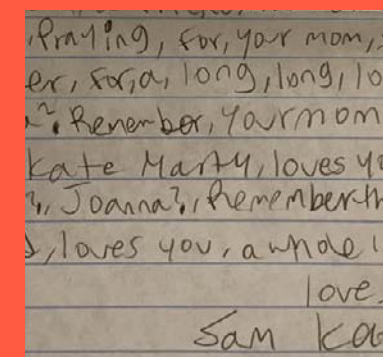 ,Praying, for, your mom,
er, for, a, long, long, lo
?, Remember, your mom
Kate Marty, loves yo
?, Joanna?, Remember th
, loves you, a whole l
love,
Sam Ka